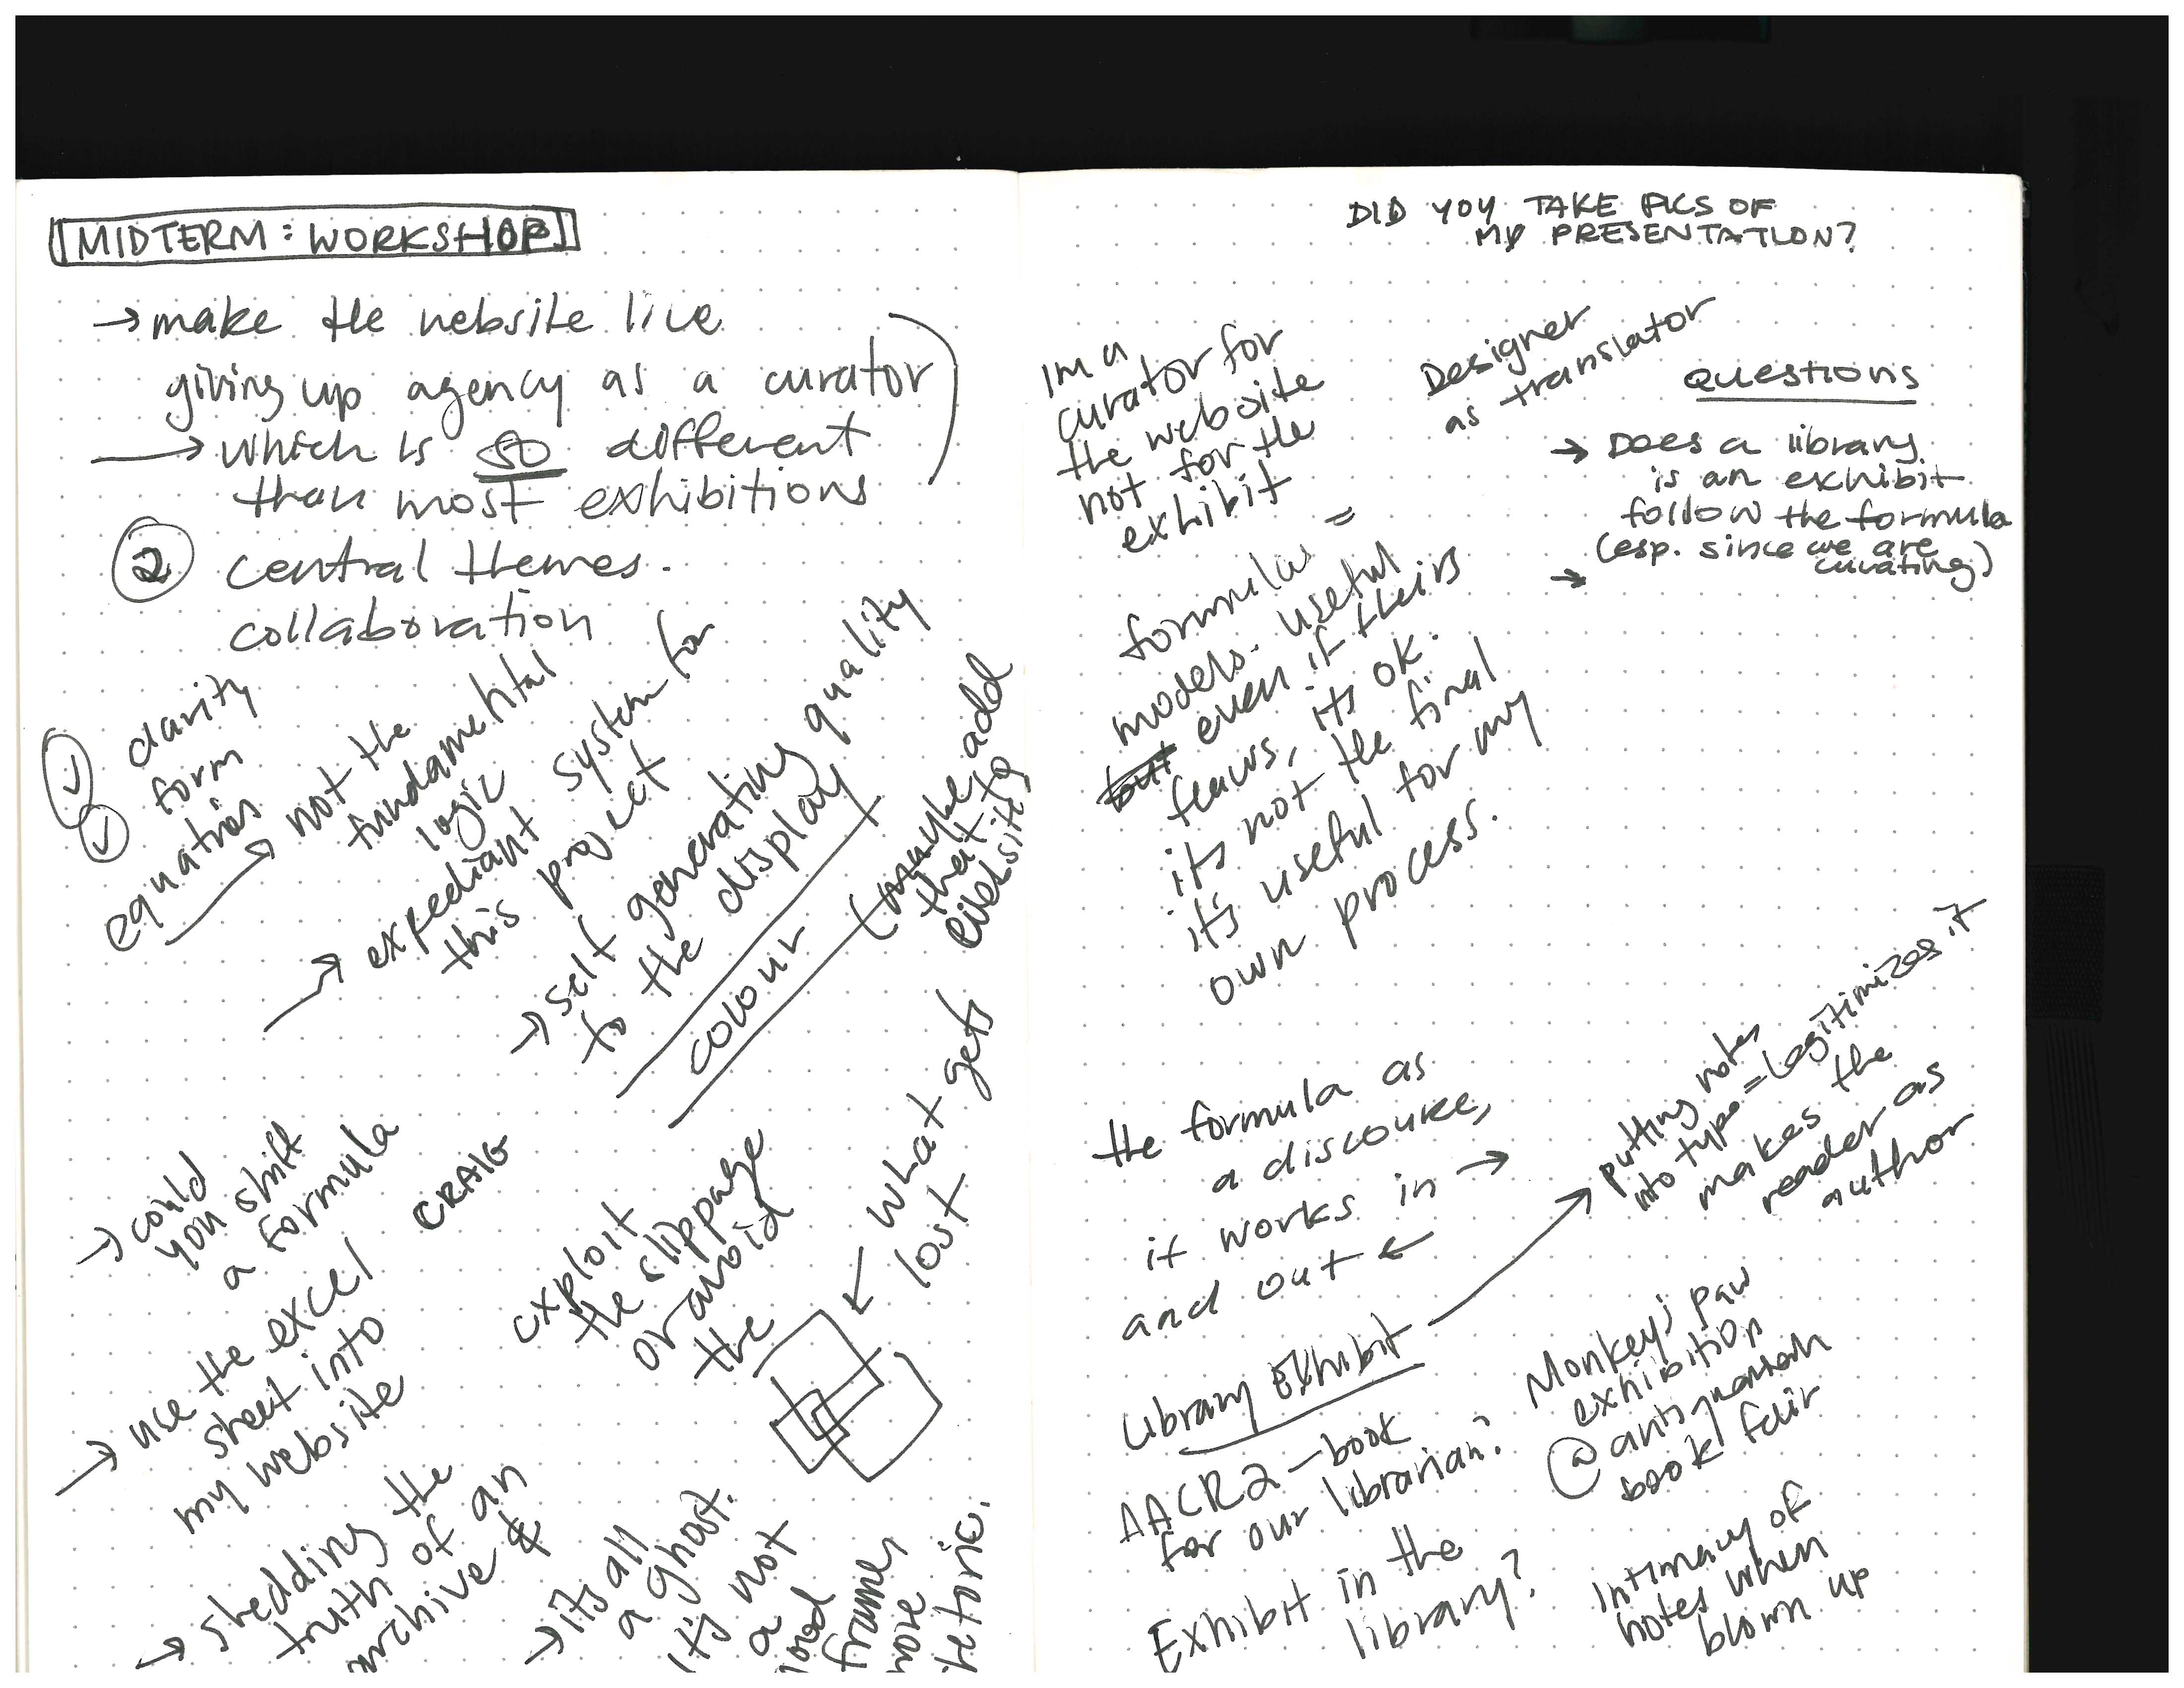 MIDTERM: WORKSHOP
→ make the website live
giving up agency as a curator
→ which is so different
than most exhibitions
2 central themes.
collaboration
clarity
form
equations
→ not the
fundamental
logic
→ expediant system for
this project
→ self generating quality
to the display
colour
(maybe add
that to
website)
→ could
you shift
a formula
CRAIG
→ use the excel
sheet into
my website
exploit
the slippage
or avoid
the
← what gets
lost
→ shedding the
truth of an
archive &
→ its all
a ghost.
it's not
a
frames
more
rhetoric.
DID YOU TAKE PICS OF
MY PRESENTATION?
Im a
curator for
the website
not for the
exhibit
Designer
as translator
QUESTIONS
→ Does a library
is an exhibit
follow the formula
(esp. since we are
curating)
→
formulas =
models. useful
but even if theirs
flaws, its ok.
its not the final
it's useful for my
own process.
the formula as
a discourse,
it works in →
and out ←
Library Exhibit →
putting notes
into type = Legitimizes it
makes the
reader as
author
AACR2 - book
for our librarian?
Monkey's paw
exhibition
@ antiquarian
book fair
Exhibit in the
library?
Intimacy of
notes when
blown up